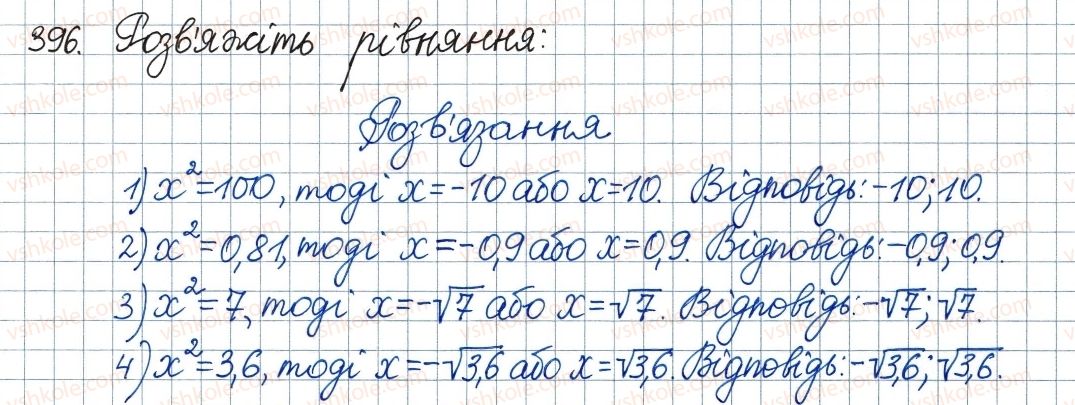 396. Розв'яжіть рівняння:
Розв'язання
1) x²=100, тоді x=-10 або x=10. Відповідь:-10;10.
2) x²=0,81, тоді x=-0,9 або x=0,9. Відповідь:-0,9;0,9.
3) x²=7, тоді x=-√7 або x=√7. Відповідь:-√7;√7.
4) x²=3,6, тоді x=-√3,6 або x=√3,6. Відповідь:-√3,6;√3,6.